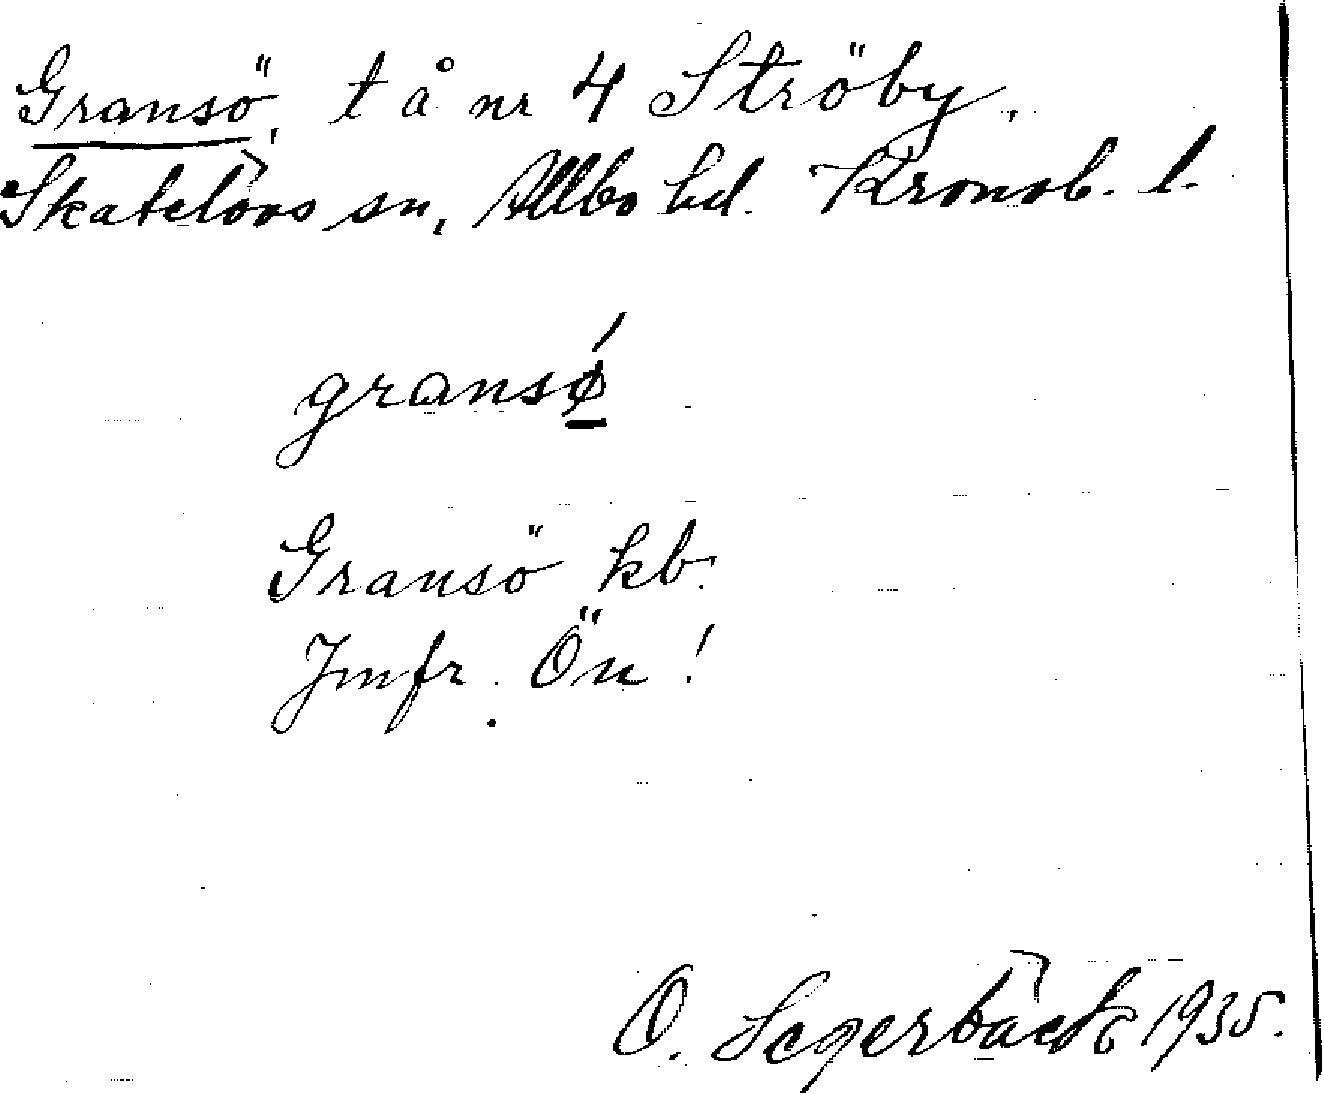 Gransö, t å nr 4 Ströby,
Skatelövs sn, Allbo hd. Kronob. l.
gransǿ
Gransö kb.
Jmfr. Ön!
O. Segerbäck 1935.